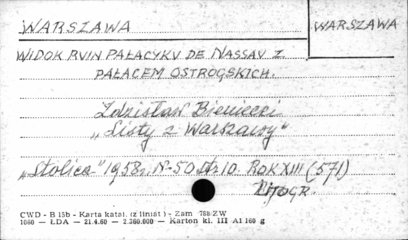 WARSZAWA
WARSZAWA
WIDOK RUIN PAŁACYKU DE NASSAU Z
PAŁACEM OSTROGSKICH.
Zdzisław Bieniecki
„Listy z Warszawy"
„Stolica" 1958r. N-50 Str. 10. ROK XIII (571)
LITOGR.
CWD - B 15b - Karta katal. (z liniat.) - Zam 788/ZW
1080 — ŁDA — 21.4.60 — 2.360.000 — Karton kl. III A1 160 g